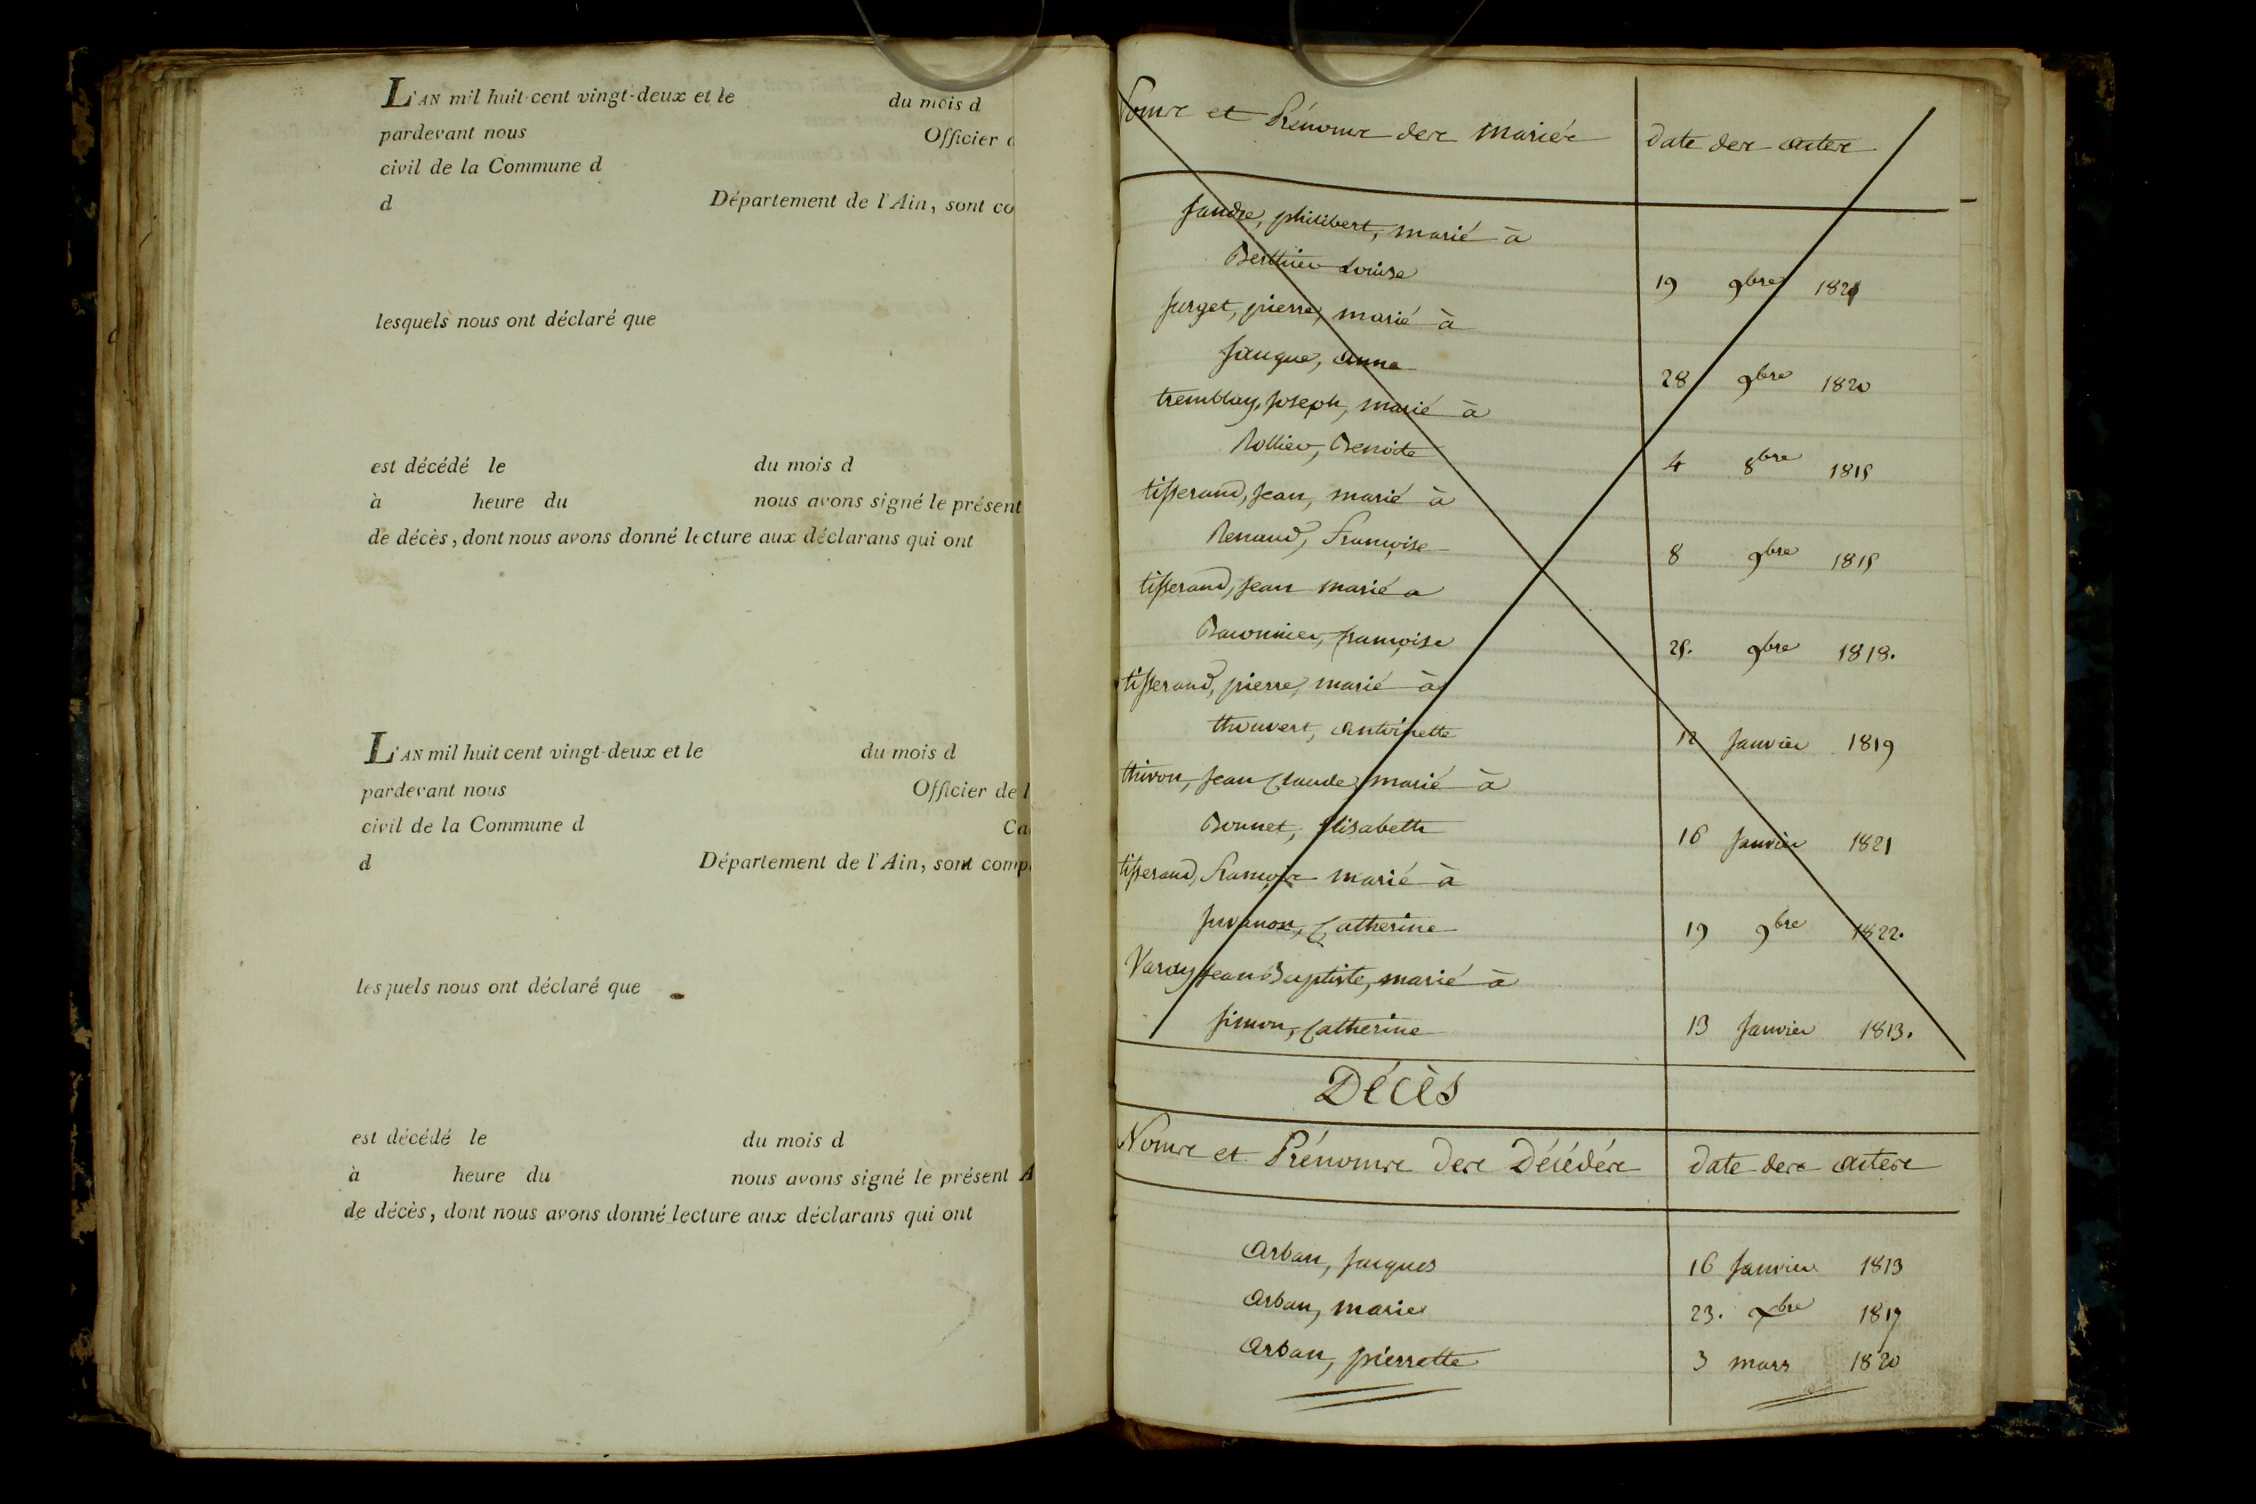 L'AN mil huit cent vingt-deux et le du mois d
pardevant nous Officier
civil de la Commune d
d Département de l'Ain, sont co
lesquels nous ont déclaré que
est décédé le du mois d
à heure du nous avons signé le présent
de décès, dont nous avons donné lecture aux déclarans qui ont
L'AN mil huit cent vingt-deux et le du mois d
pardevant nous Officier de l
civil de la Commune d Ca
d Département de l'Ain, sont comp
lesquels nous ont déclaré que
est décédé le du mois d
à heure du nous avons signé le présent A
de décès, dont nous avons donné lecture aux déclarans qui ont
Noms et Prénoms des mariés date des actes
philibert, marié à
Berthier Louise 19 9bre
Furget, pierre, marié à
anne 28 9bre 1820
tremblay, Joseph, marié à
Rollier, Benoite 4 8bre
tisserand, Jean, marié à
Renaud, Françoise 8 9bre
tisserand, Jean marié a
françoise 9bre 1818.
tisserand, pierre, marié à
thouvert, antoinette 12 Janvier 1819
thivon, Jean Claude marié à
Bonnet, Elisabeth 16 Janvier 1821
tisserand, François marié à
Juvanon, Catherine 19 9bre 1822.
Varey Jean Baptiste, marié à
Simon, Catherine 13 Janvier 1813.
Décès
Noms et Prénoms des Décédés date des actes
arban, Jacques 16 Janvier 1813
arban, marie 23. 1817
arban, pierrette 3 mars 1820